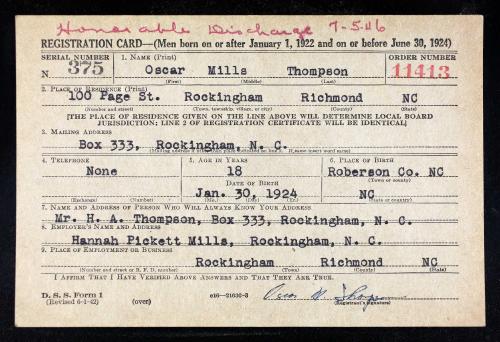 Honorable Discharge 7-5-46
REGISTRATION CARD—(Men born on or after January 1, 1922 and on or before June 30, 1924)
SERIAL NUMBER 1. NAME (Print) ORDER NUMBER
N 375 Oscar Mills Thompson 11413
(First) (Middle) (Last)
2. PLACE OF RESIDENCE (Print)
100 Page St. Rockingham Richmond NC
(Number and street) (Town, township, village, or city) (County) (State)
[THE PLACE OF RESIDENCE GIVEN ON THE LINE ABOVE WILL DETERMINE LOCAL BOARD
JURISDICTION; LINE 2 OF REGISTRATION CERTIFICATE WILL BE IDENTICAL]
3. MAILING ADDRESS
Box 333, Rockingham, N. C.
[Mailing address if other than place indicated on line 2. If same insert word same]
4. TELEPHONE 5. AGE IN YEARS 6. PLACE OF BIRTH
None 18 Roberson Co. NC
DATE OF BIRTH (Town or county)
Jan. 30, 1924 NC
(Exchange) (Number) (Mo.) (Day) (Yr.) (State or country)
7. NAME AND ADDRESS OF PERSON WHO WILL ALWAYS KNOW YOUR ADDRESS
Mr. H. A. Thompson, Box 333, Rockingham, N. C.
8. EMPLOYER'S NAME AND ADDRESS
Hannah Pickett Mills, Rockingham, N. C.
9. PLACE OF EMPLOYMENT OR BUSINESS
Rockingham Richmond NC
(Number and street or R. F. D. number) (Town) (County) (State)
I AFFIRM THAT I HAVE VERIFIED ABOVE ANSWERS AND THAT THEY ARE TRUE.
D. S. S. Form 1
(Revised 6-1-42) (over) e16—21630-2 Oscar M. Thompson
(Registrant's signature)